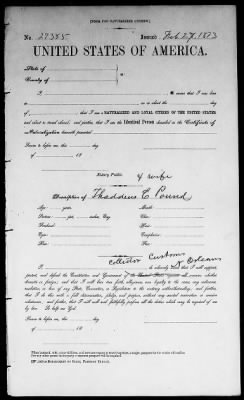 [FORM FOR NATURALIZED CITIZEN.]
No. 27385 Issued Feb 27, 1873
UNITED STATES OF AMERICA.
State of
County of
I, do swear that I was born
in on or about the day
of ; that I am a NATURALIZED AND LOYAL CITIZEN OF THE UNITED STATES
and about to travel abroad; and further, that I am the Identical Person described in the Certificate of
Naturalization herewith presented.
Sworn to before me, this day
of 18
Notary Public.
& wife
Description of Thaddeus C Pound
Age: years.
Stature: feet, inches, Eng.
Forehead:
Eyes:
Nose:
Mouth:
Chin:
Hair:
Complexion:
Face:
Collector Customs
N Orleans
I, do solemnly swear that I will support,
protect, and defend the Constitution and Government of the United States against all enemies, whether
domestic or foreign; and that I will bear true faith, allegiance, and loyalty to the same, any ordinance,
resolution, or law of any State, Convention, or Legislature to the contrary notwithstanding; and further,
that I do this with a full determination, pledge, and purpose, without any mental reservation or evasion
whatsoever; and further, that I will well and faithfully perform all the duties which may be required of me
by law. So help me God.
Sworn to before me, this day
of 18